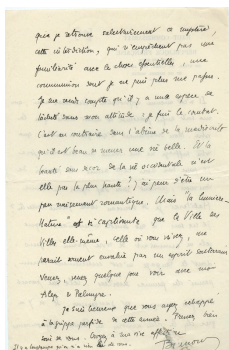 que je retrouve
cette interdiction, qui n'empêchent pas une
familiarité avec la chose essentielle, une
communion dont je ne puis plus me passer.
Je me rends compte qu'il y a une espèce de
lâcheté dans mon attitude : je fuis le combat.
C'est au contraire dans l'abîme de la médiocrité
qu'il est beau de mener une vie belle. Et la
beauté de la vie occidentale n'est
elle pas la plus haute ? J'ai peur d'être un
peu naïvement romantique. Mais la
Nature" est si captivante que la Ville des
Villes elle-même, celle où vous vivez, me
paraît souvent par un esprit souterrain
Venez, venez quelque jour voir avec moi
Alep & Palmyre.
Je suis heureux que vous ayez échappé
à la grippe perfide de cette année. Prenez bien
soin de vous. Croyez à ma vive affection